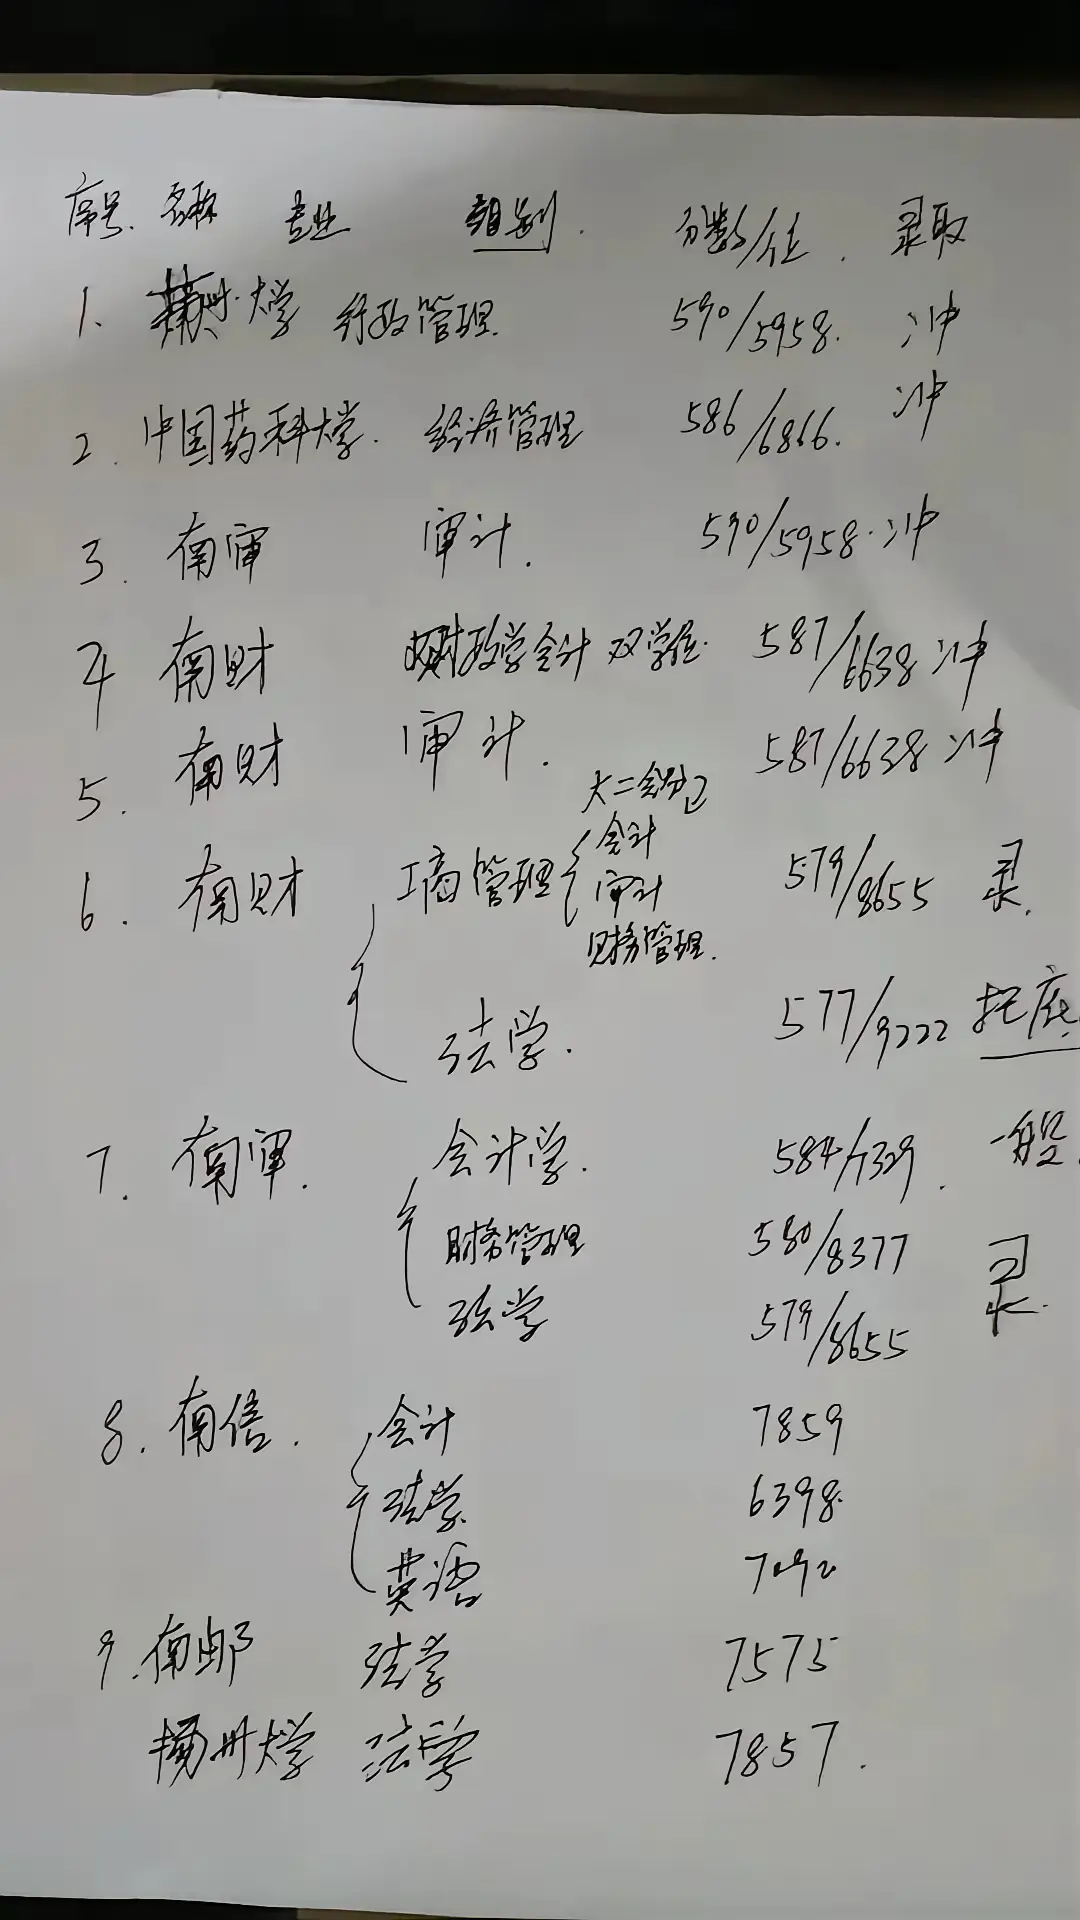 序号. 名称 专业 组别. 分数/位. 录取
1. 大学 行政管理. 590/5958. 冲
2. 中国药科大学. 经济管理 586/6866. 冲
3. 南审 审计. 590/5958. 冲
4 南财 财政学会计 双学位. 587/6638 冲
5. 南财 审计. 587/6638 冲
大二会分包
6. 南财 工商管理 会计 579/8655 录.
审计
财务管理.
法学. 577/9222 托底
7. 南审. 会计学. 584/7329. 一般.
财务管理 580/8377 录.
法学 579/8655
8. 南信. 会计 7859
法学. 6398.
英语 7092
9. 南邮 法学 7575
扬州大学 法学 7857.